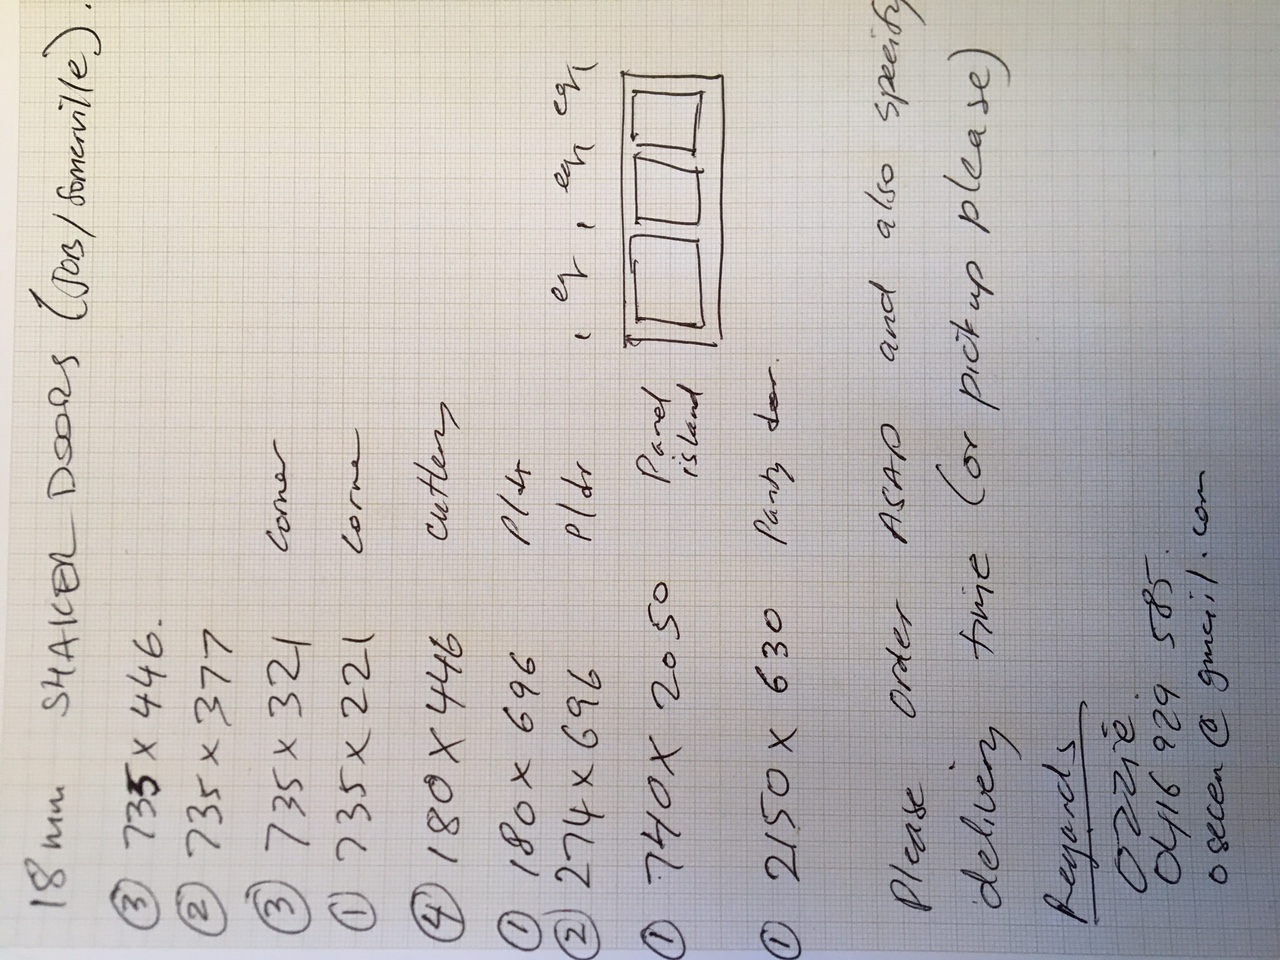 18 mm SHAKER DOORS (JOB/Somerville).
③ 735 x 446.
② 735 x 377
③ 735 x 321 Corner
① 735 x 221 Corne
④ 180 x 446 Cutlery
① 180 x 696 P/dr
② 274 x 696 P/dr
, eq , eq, eq,
① 740 x 2050 Panel island
① 2150 x 630 Pantry door.
Please order ASAP and also specify
delivery time (or pick up please)
Regards
Ozzie.
0416 929 585.
oseccen@gmail.com